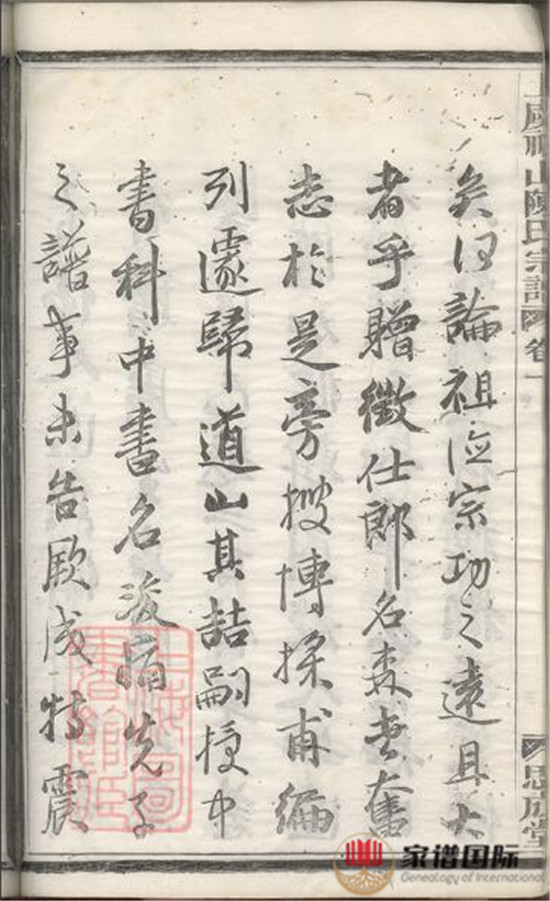 上虞 山陳氏宗譜 卷一
思成堂
矣何論祖德宗功之遠且大
者乎贈徵仕郎名森 奮
志於是旁搜博採甫編
列遽歸道山其喆嗣授中
書科中書名浚痛先子
之譜事未告厥成特震
上海圖書館藏
家谱国际
Genealogy of International